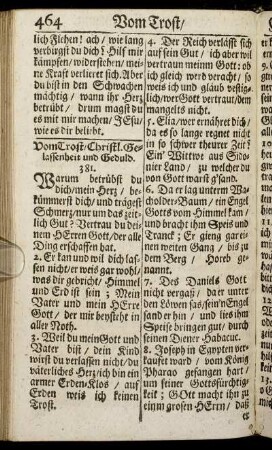 464 Vom Trost/
lich Flehen! ach/ wie lang
verbürgst du dich? Hilf mir
kämpfen/widerstehen/ mei-
ne Kraft verlieret sich. Aber
du bist in den Schwachen
mächtig/ wann ihr Herz
betrübt/ drum magst du
es mit mir machen/JEsu/
wie es dir beliebt.
Vom Trost/ Christl. Ge-
lassenheit und Geduld.
381.
Warum betrübst du
dich/mein Herz/ be-
kümmerst dich/ und trägest
Schmerz/nur um das zeit-
lich Gut? Vertrau du dei-
nem HErren Gott/der alle
Ding erschaffen hat.
2. Er kan und wil dich las-
sen nicht/er weis gar wohl/
was dir gebricht/ Himmel
und Erd ist sein; Mein
Vater und mein HErre
Gott/ der mir beysteht in
aller Noth.
3. Weil du mein Gott und
Vater bist/ dein Kind
wirst du verlassen nicht/du
väterliches Herz/ich bin ein
armer Erden-Klos/ auf
Erden weis ich keinen
Trost.
4. Der Reich verläßt sich
auf sein Gut/ ich aber wil
vertrauen meinm Gott: ob
ich gleich werd veracht/ so
weis ich und gläub vestig-
lich/wer Gott vertraut/dem
mangelts nicht.
5. Elia/wer ernährt dich/
da es so lange regnet nicht
in so schwer theurer Zeit?
Ein Wittwe aus Sido-
nier Land/ zu welcher du
von Gott warst gesand.
6. Da er lag unterm Wa-
cholder-Baum/ ein Engel
Gotts vom Himmel kam/
und bracht ihm Speis und
Trank; Er gieng gar ei-
nen weiten Gang/ bis zu
dem Berg/ Horeb ge-
nannt.
7. Des Daniels Gott
nicht vergaß/ da er unter
den Löwen saß/sein'n Engel
sandt er hin/ und lies ihm
Speise bringen gut/ durch
seinen Diener Habacuc.
8. Joseph in Egypten ver-
kauffet ward/ vom König
Pharao gefangen hart/
um seiner Gottsfürchtig-
keit; GOtt macht ihn zu
einem grossen HErrn/ daß
er